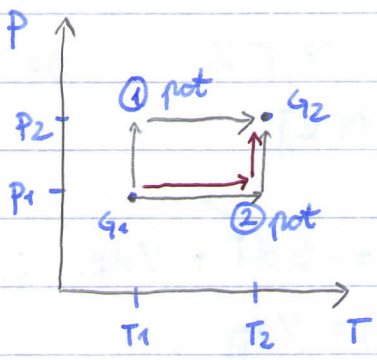 P
① pot
G2
P2
P1
G1
② pot
T1
T2
T